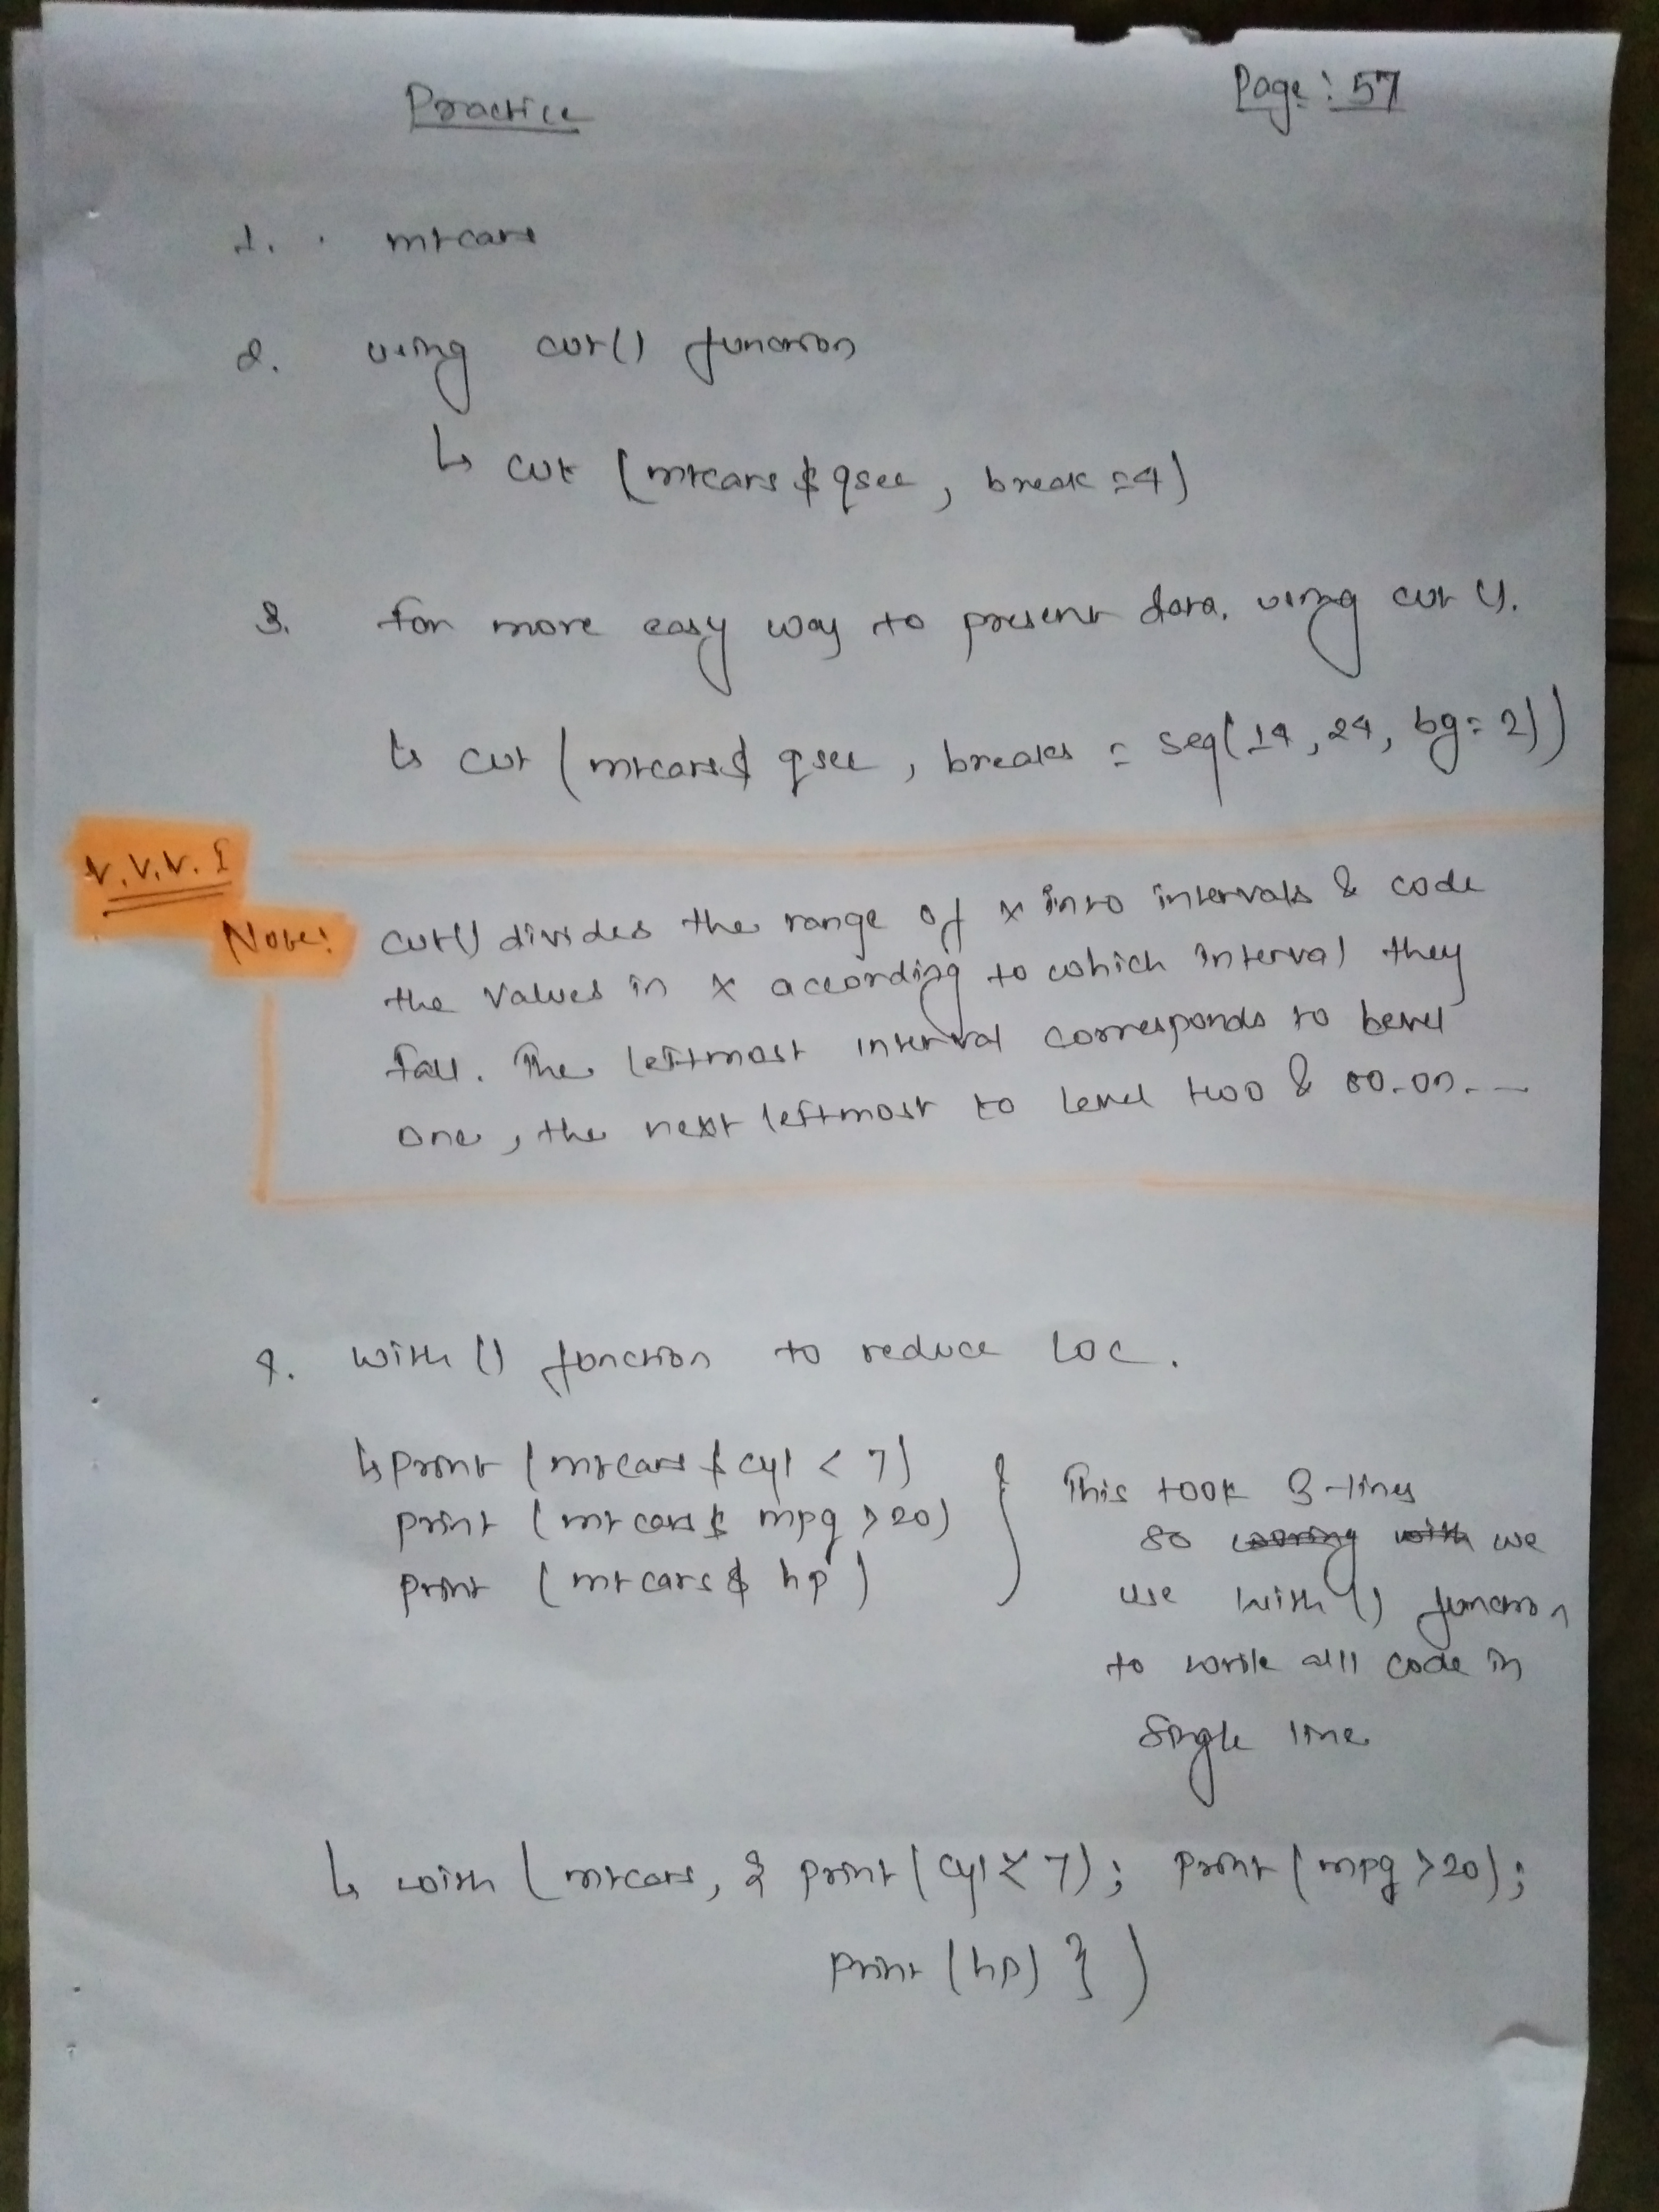 Practice
Page: 57
1. mtcars
2. using cut() function
↳ cut (mtcars $ qsec, break = 4)
3. for more easy way to present data. using cut ().
↳ cut (mtcars$ qsec, breaks = seq(14, 24, by = 2))
V.V.V. I
Note: cut() divides the range of x into intervals & code
the values in x according to which interval they
fall. The leftmost interval corresponds to level
one, the next leftmost to level two & so.on. --
4. with () function to reduce LOC.
↳ print (mtcars $ cyl < 7) } This took 3-lines
print (mtcars $ mpg > 20) so we
print (mtcars $ hp) use with () function
to write all code in
single line
↳ with (mtcars, { print (cyl < 7); print (mpg > 20);
print (hp) } )